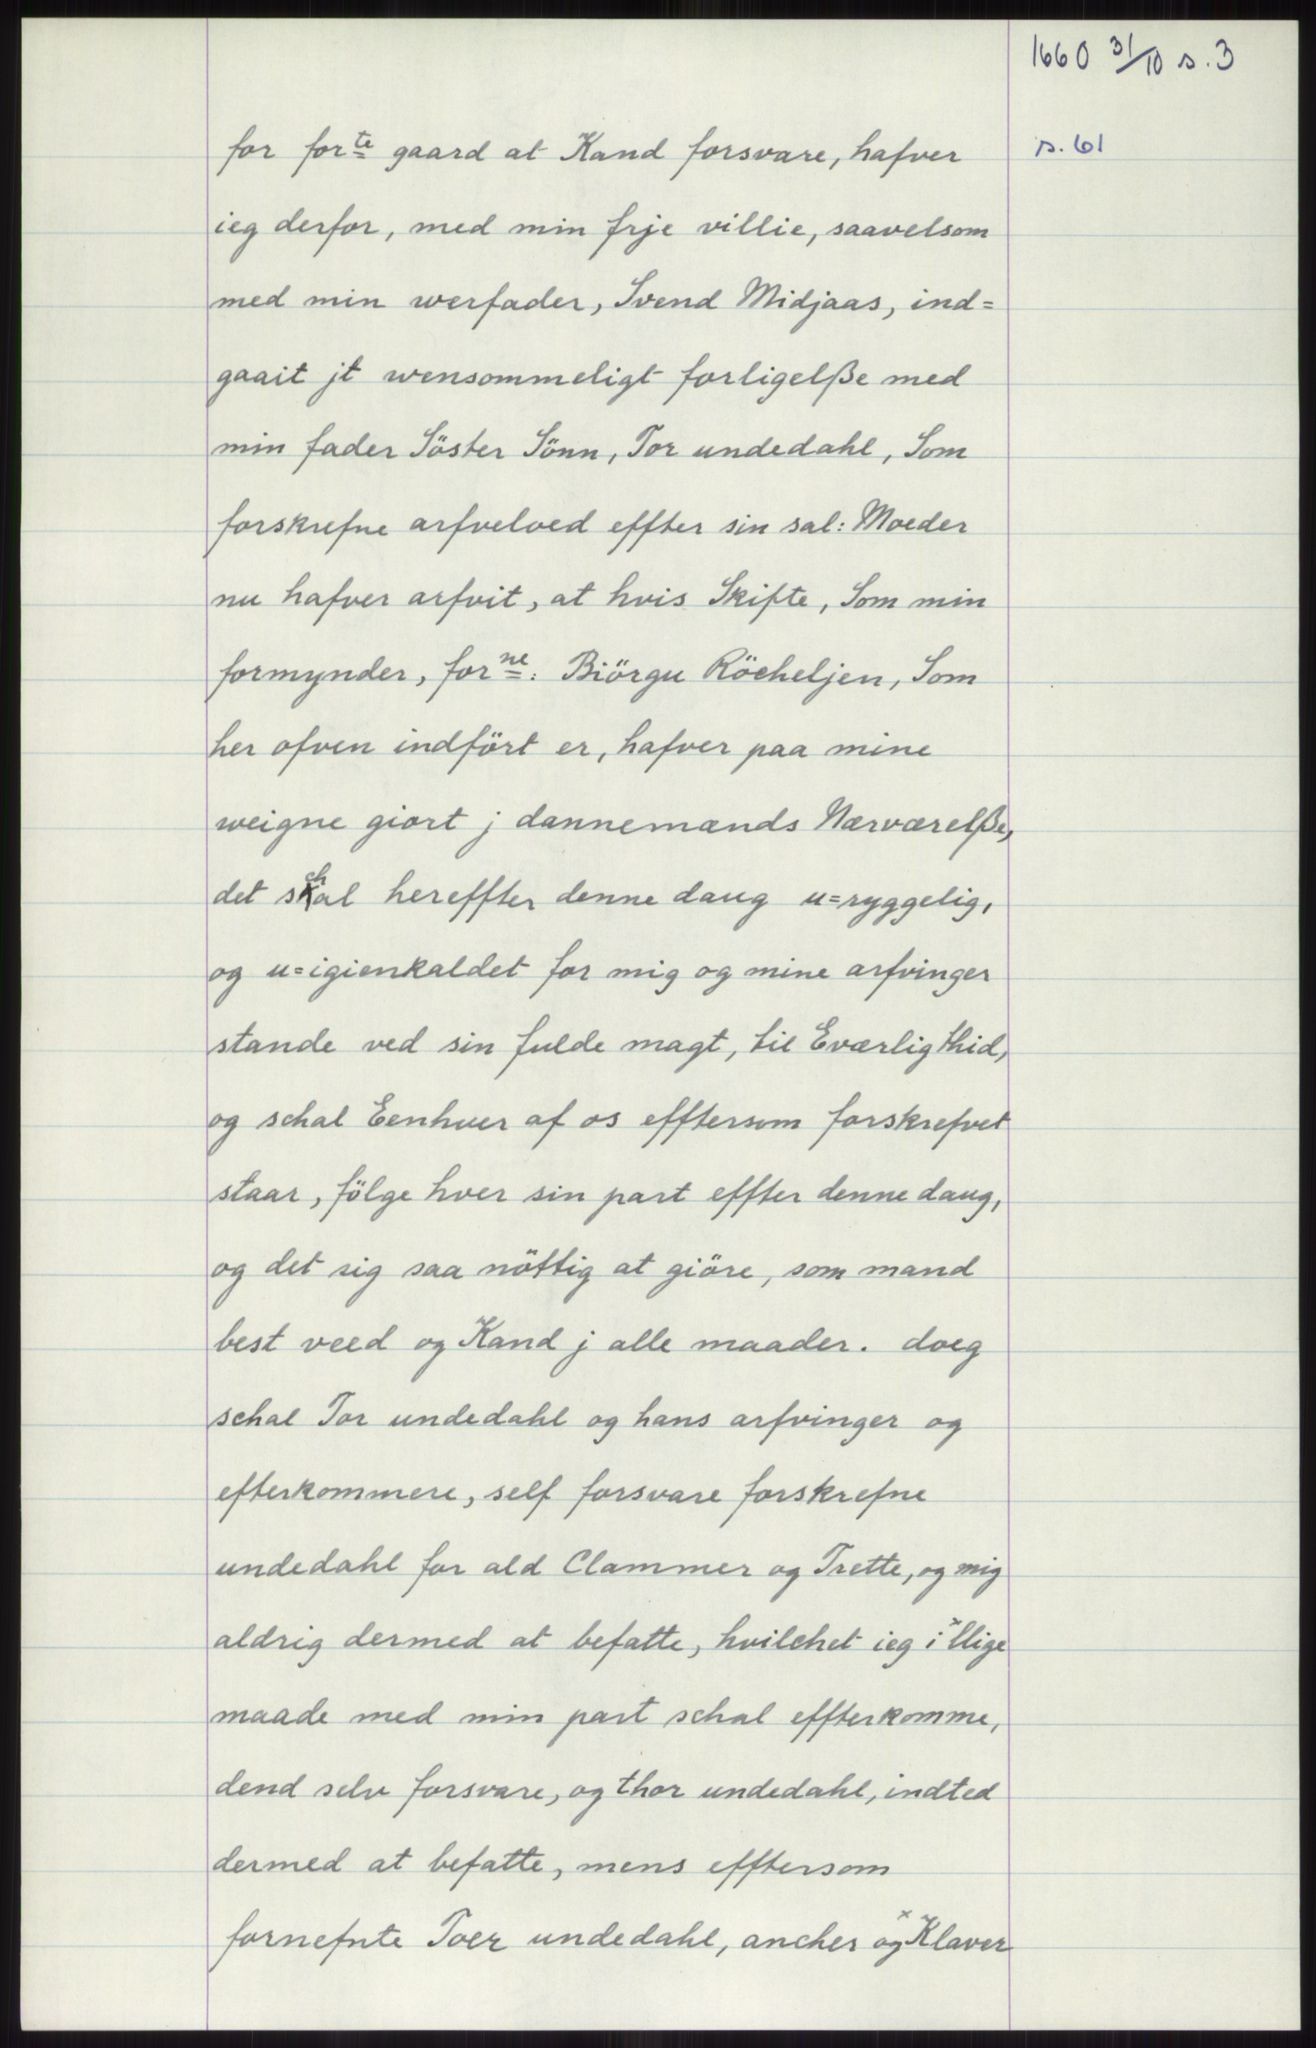 1660 31/10 s. 3
s. 61
for forte gaard at Kand forsvare, hafver
ieg derfor, med min frje villie, saavelsom
med min werfader, Svend Midjaas, ind=
gaait jt wensommeligt forligelße med
min fader Söster Sönn, Tor undedahl, Som
forskrefne arfvelod effter sin sal: Moeder
nu hafver arfvit, at hvis Skifte, Som min
formynder, forne: Biörgu Röcheljen, Som
her ofven indfört er, hafver paa mine
weigne giort j dannemænds Nærværelße,
det schal hereffter denne daug u=ryggelig,
og u=igienkaldet for mig og mine arfvinger
stande ved sin fulde magt, til Eværlig thid,
og schal Eenhver af os efftersom forskrefvet
staar, fölge hver sin part effter denne daug,
og det sig saa nöttig at giöre, som mand
best veed og Kand j alle maader. doeg
schal Tor undedahl og hans arfvinger og
efterkommere, self forsvare forskrefne
undedahl for ald Clammer og Trette, og mig
aldrig dermed at befatte, hvilchet ieg i xllige
maade med min part schal effterkomme,
dend selv forsvare, og thor undedahl, indted
dermed at befatte, mens efftersom
fornefnte Toer undedahl, ancher og xKlaver